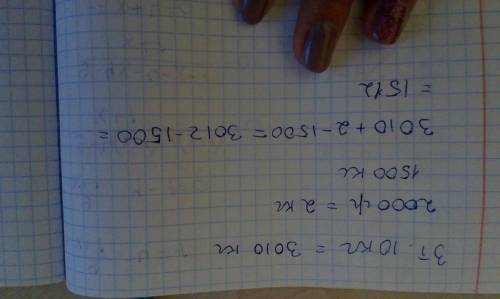 3т 10 кг = 3010 кг
2000 г = 2 кг
1500 кг
3010 + 2 - 1500 = 3012 - 1500 =
= 1512